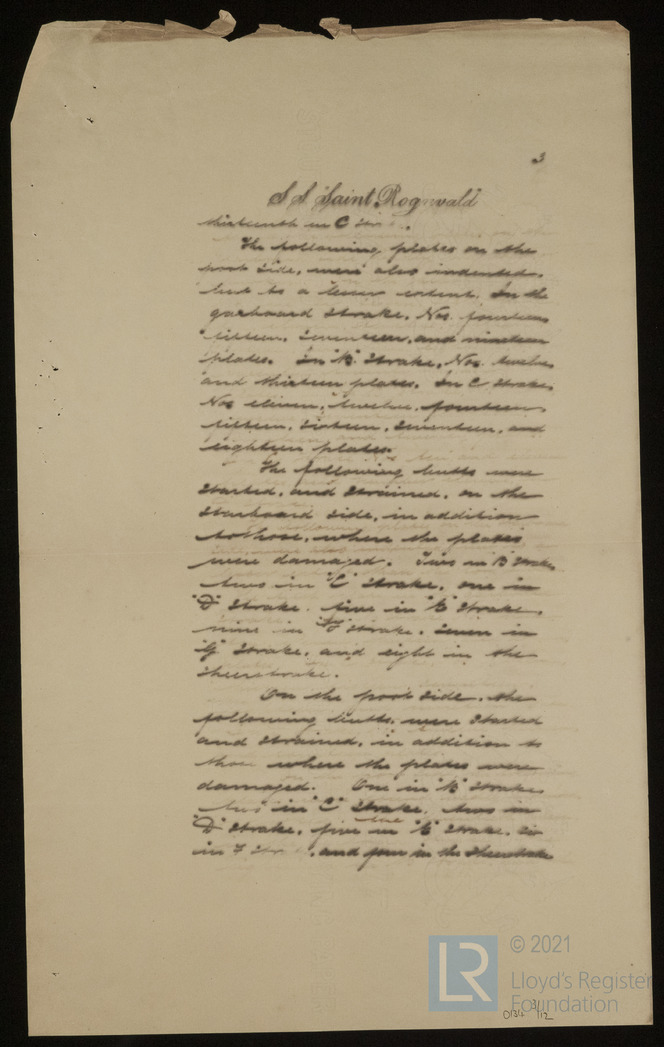 3
S.S. "Saint Rognvald"
thirteenth in C
The following plates on the
port side, were also indented,
but to a lesser extent. In the
garboard strake, Nos. fourteen
fifteen, seventeen, and nineteen
plates. In "B" strake, Nos. twelve
and thirteen plates. In C strake
Nos eleven, twelve, fourteen
fifteen, sixteen, seventeen, and
eighteen plates.
The following butts were
started, and strained, on the
starboard side, in addition
to those, where the plates
were damaged. Two in B strake
two in "C" strake, one in
"D" strake, five in "E" strake,
nine in "F" strake, seven in
"G" strake, and eight in the
sheerstrake.
On the port side, the
following butts, were started
and strained, in addition to
those where the plates were
damaged. One in "B" strake
two in "C" strake, two in
"D" strake, five in "E" strake, six
in F, and four in the sheerstrake
© 2021
LR
Lloyd's Register
Foundation